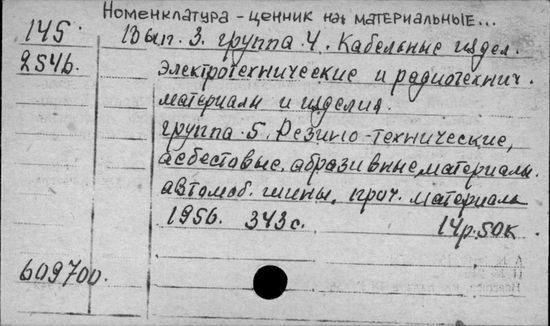 Номенклатура - ценник на материальные...
145
Вып. 3. группа 4. Кабельные издел.
254б.
Электротехнические и радиотехнич.
материалы и изделия.
группа 5. Резино-технические,
асбестовые, абразивные, материалы.
автомоб. шины, проч. материалы
1956. 343 с. 14 р. 50 к.
609700.